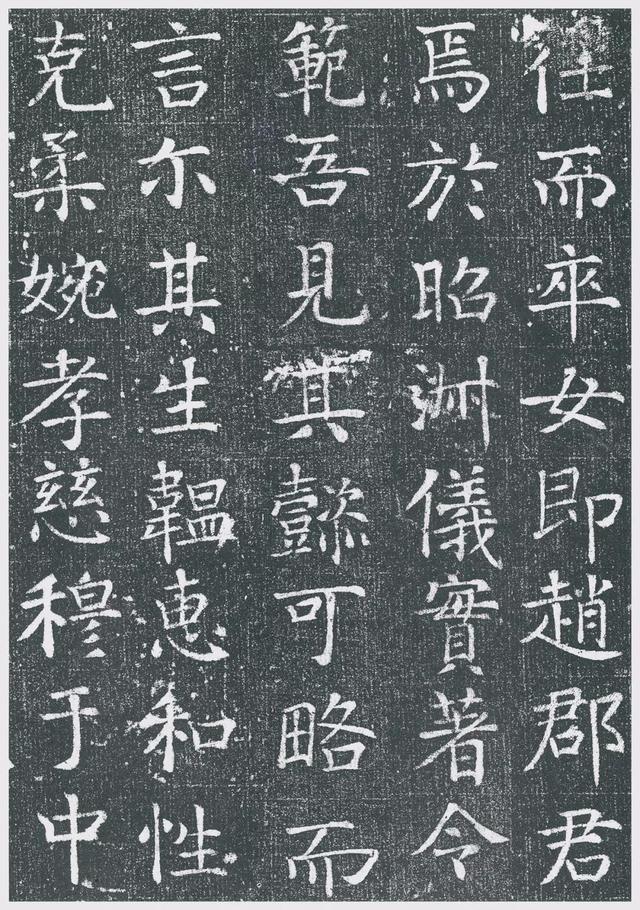 往而卒女即趙郡君
焉於昭淑儀實著令
範吾見其懿可略而
言尓其生韞惠和性
克柔婉孝慈穆于中